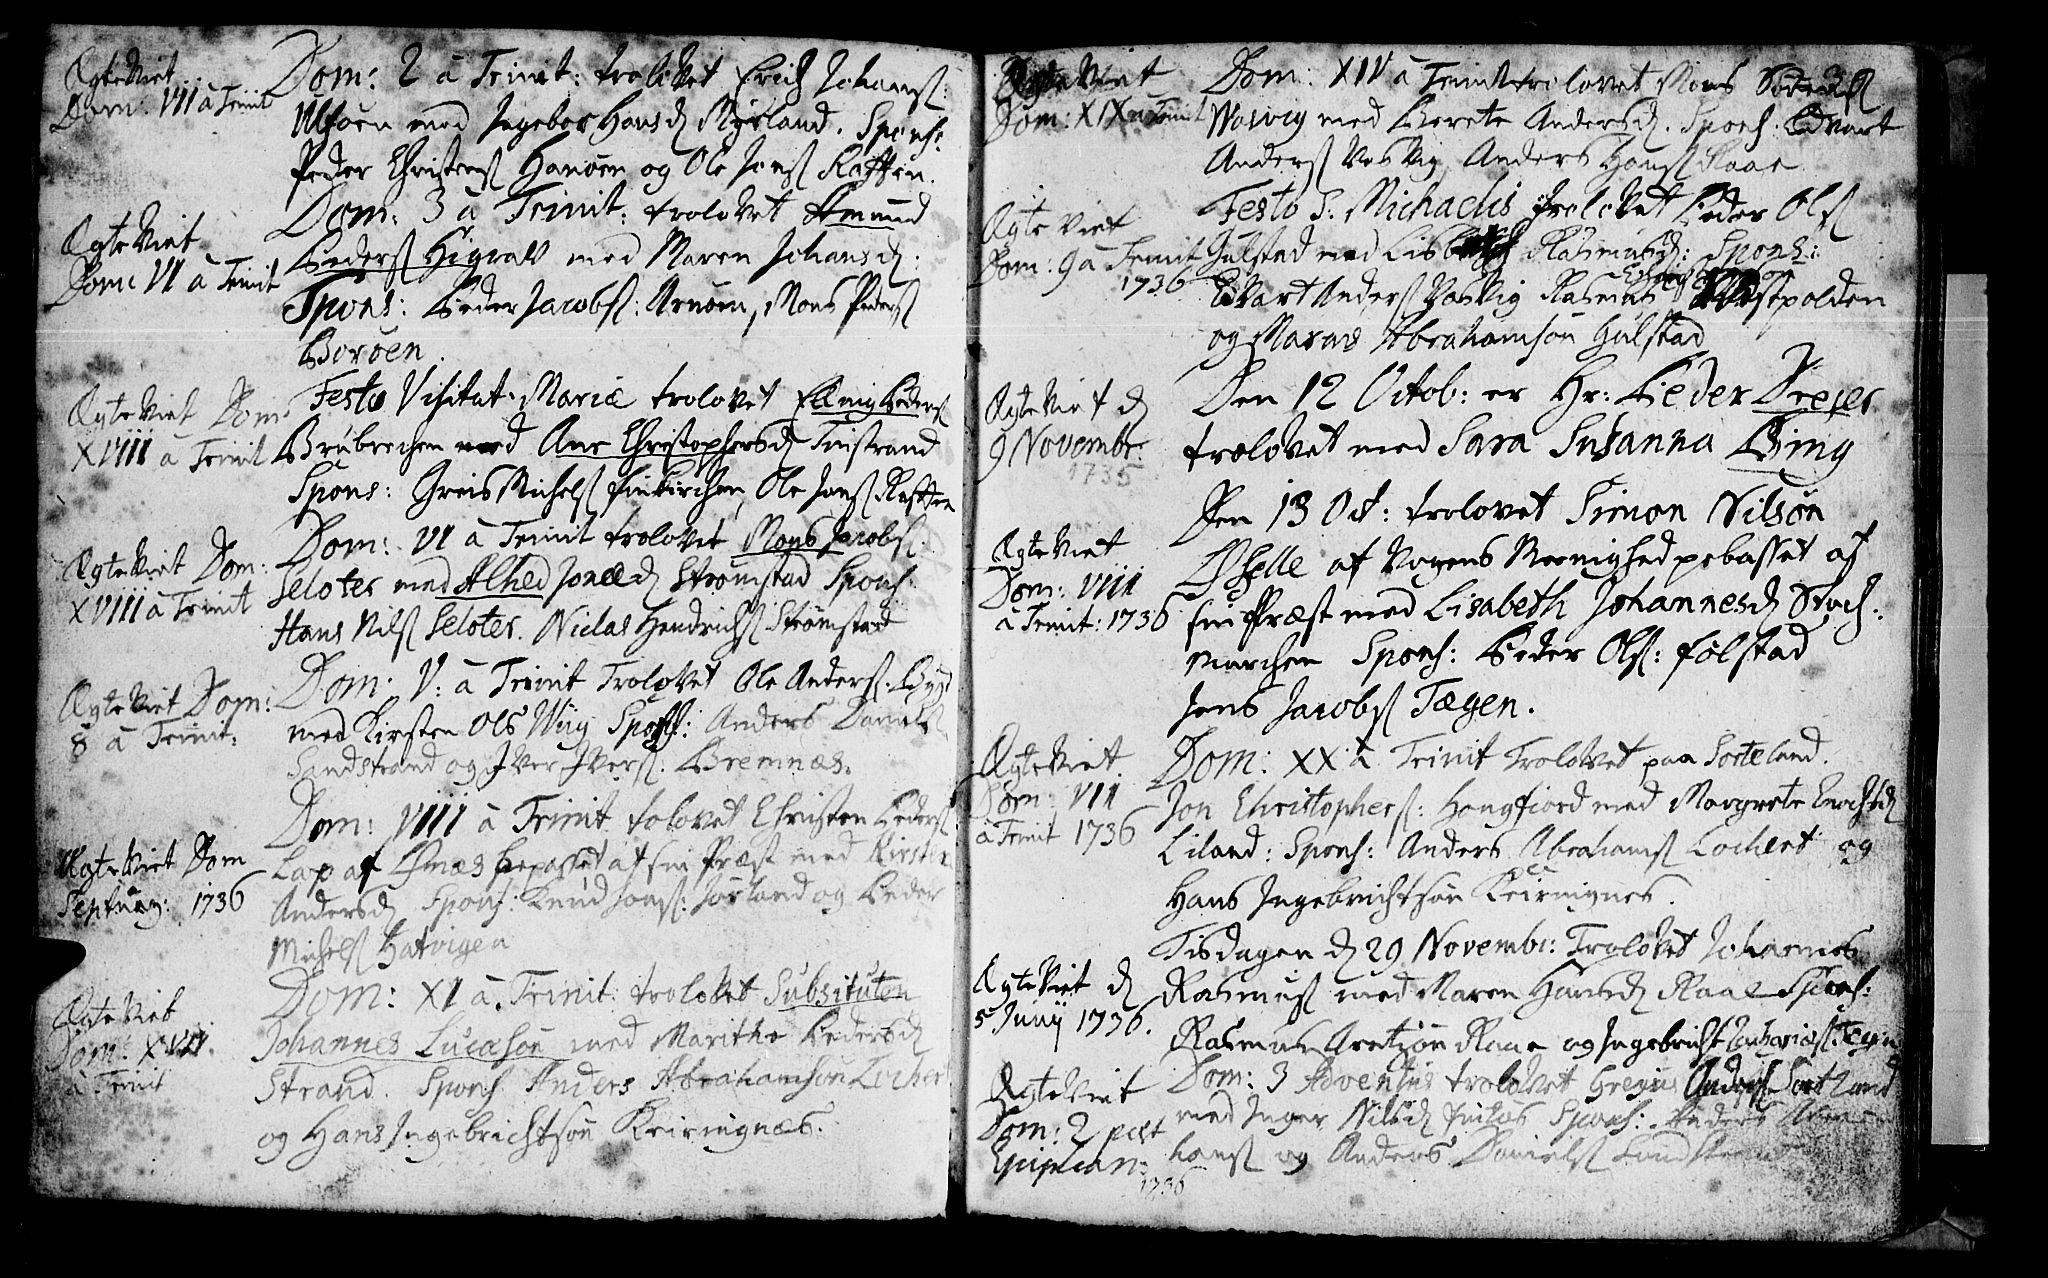 ÆgteViet
Dom: VII à Trinit
Dom: 2 à Trinit: trolovet Erich Johans:
Ulføen med Ingebor Hans D Myrland. Spons:
Peder Christens Hanøen og Ole Jons Raften.
ÆgteViet
Dom: VI à Trinit
Dom: 3 à Trinit: trolovet Amund
Peders Higrav med Maren Johans D:
Spons: Peder Jacobs: Arnøen, Mons Peders
Borøen.
ÆgteViet Dom:
XVIII à Trinit
Festo Visitat: Mariæ trolovet Elling Peders
Brubrechen med Ane Christophers D Finstrand
Spons: Greis Michels finkirchen, Ole Jons Raften
ÆgteViet Dom:
XVIII à Trinit
Dom: VI à Trinit trolovet Mons Jacobs
Seloter med Alhed Jons D Strømstad Spons:
Hans Nils Seloter. Niclas Hendrichs Strømstad
ÆgteViet Dom:
8 à Trinit:
Dom: V: à Trinit Trolovet Ole Anders. Bygd
med Kirsten Ols Wiig Spons: Anders Daniels
Sandstrand og Iver Ivers. Bremnæs.
ÆgteViet Dom
Septuag: 1736
Dom: VIII à Trinit. trolovet Christen Peders:
Lap af Efnæs bepasset af sin Præst med Kirsten
Anders D Spons: Knud Jons: Jørland og Peder
Michels Hatvigen
ÆgteViet
Dom: XVII.
à Trinit
Dom: XI à. Trinit: trolovet Substituten
Johannes Lucæsøn med Marithe Peders D
Strand. Spons Anders Abrahamsøn Locher
og Hans Ingebrichtsøn Keiringnæs.
ÆgteViet
Dom: XIX à Trinit
Dom: XIV à Trinit trolovet Mons Sørens
Wosvig med Berete Anders D. Spons: Edvart
Anders Vosvig, Anders Hans Raae
Ægte viet
Dom: 9 à Trinit
1736
Festo S: Michaelis trolovet Peder Ols
Gulstad med Lisbeth Rasmus D: Spons:
Edvart Anders Vosvig Rasmus Vestpolden
og Marcus Abrahamsøn Gulstad
ÆgteViet D
9 Novembr:
1735
Den 12 Octob: er Hr: Peder Dreyer
trolovet med Sara Susanna Bing
ÆgteViet
Dom: VIII
à Trinit: 1736
Den 13 Oct: trolovet Simon Nilsøn
af Vogens Meenighed pebasset af
sin Præst med Lisabeth Johannes D Stoch:
marchen Spons: Peder Ols: Folstad
Jens Jacobs Tægen.
ÆgteViet
Dom: VII
à Trinit 1736
Dom: XX à Trinit Trolovet paa Sorteland.
Jon Christophers: Hongfiord med Margrete Enochs D
Liland: Spons: Anders Abrahams Lochert og
Hans Ingebrichtsøn Keiringnes.
ÆgteViet D
5 Junij 1736.
Tisdagen D 29 Novembr: Trolovet Johannes
Rasmus med Maren Hans D Raae Spons:
Rasmus Aretsøn Raae og Ingebricht Zachariæs: Tægen
ÆgteViet
Dom: 2 post
Epiphan:
1736
Dom: 3 Adventus trolovet Gregius Anders Sortland
med Inger Nils D Spons: Anders
hans og Anders Daniels Sandstrand